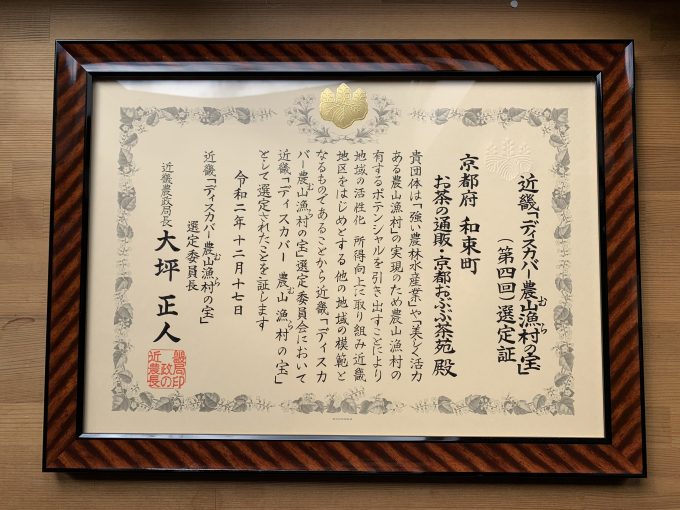 近畿「ディスカバー農山漁村の宝」
（第四回）選定証
京都府 和束町
お茶の通販・京都おぶぶ茶苑 殿
貴団体は「強い農林水産業」や「美しく活力
ある農山漁村」の実現のため農山漁村の
有するポテンシャルを引き出すことにより
地域の活性化 所得向上に取り組み近畿
地区をはじめとする他の地域の模範と
なるものであることから近畿「ディスカ
バー農山漁村の宝」選定委員会において
近畿「ディスカバー 農山漁村の宝」
として選定されたことを証します
令和二年十二月十七日
近畿「ディスカバー農山漁村の宝」
選定委員長
近畿農政局長 大坪正人